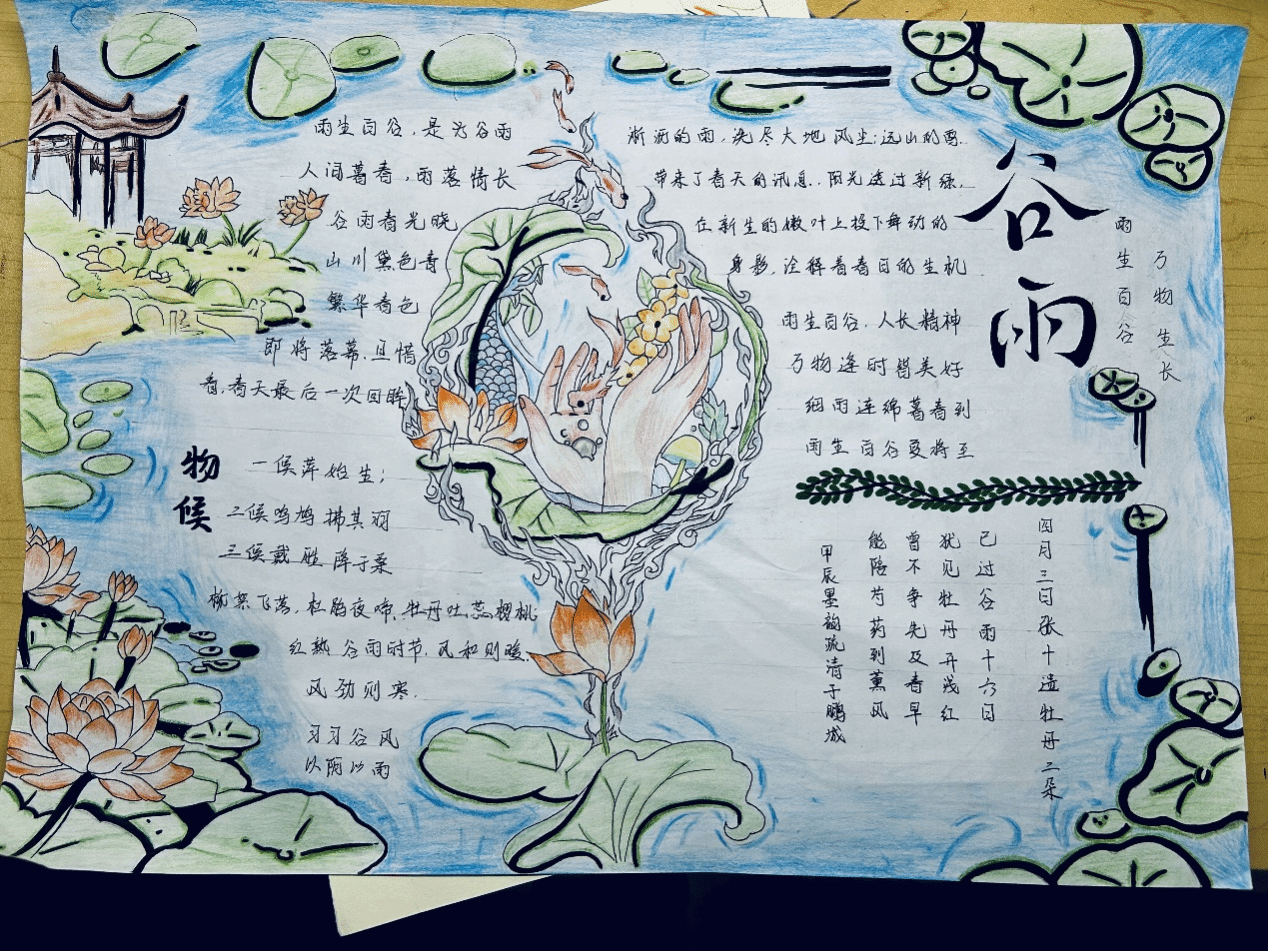 谷雨
雨生百谷
万物生长
雨生百谷，是为谷雨
人间暮春，雨落情长
谷雨春光晓
山川黛色青
繁华春色
即将落幕，且惜
春，春天最后一次回眸
淅沥的雨，洗尽大地风尘；远山的雪
带来了春天的讯息，阳光透过新绿，
在新生的嫩叶上投下舞动的
身影，诠释着春日的生机
雨生百谷，人长精神
万物逢时皆美好
细雨连绵暮春到
雨生百谷夏将至
物候
一候萍始生；
二候鸣鸠拂其羽
三候戴胜降于桑
柳絮飞落，杜鹃夜啼，牡丹吐蕊樱桃
红熟 谷雨时节，风和则暖，
风劲则寒.
习习谷风
以阴以雨
四月三日张十遗牡丹二朵
已过谷雨十六日
犹见牡丹开浅红
曾不争先及春早
能陪芍药到薰风
甲辰墨韵疏清于鹏城